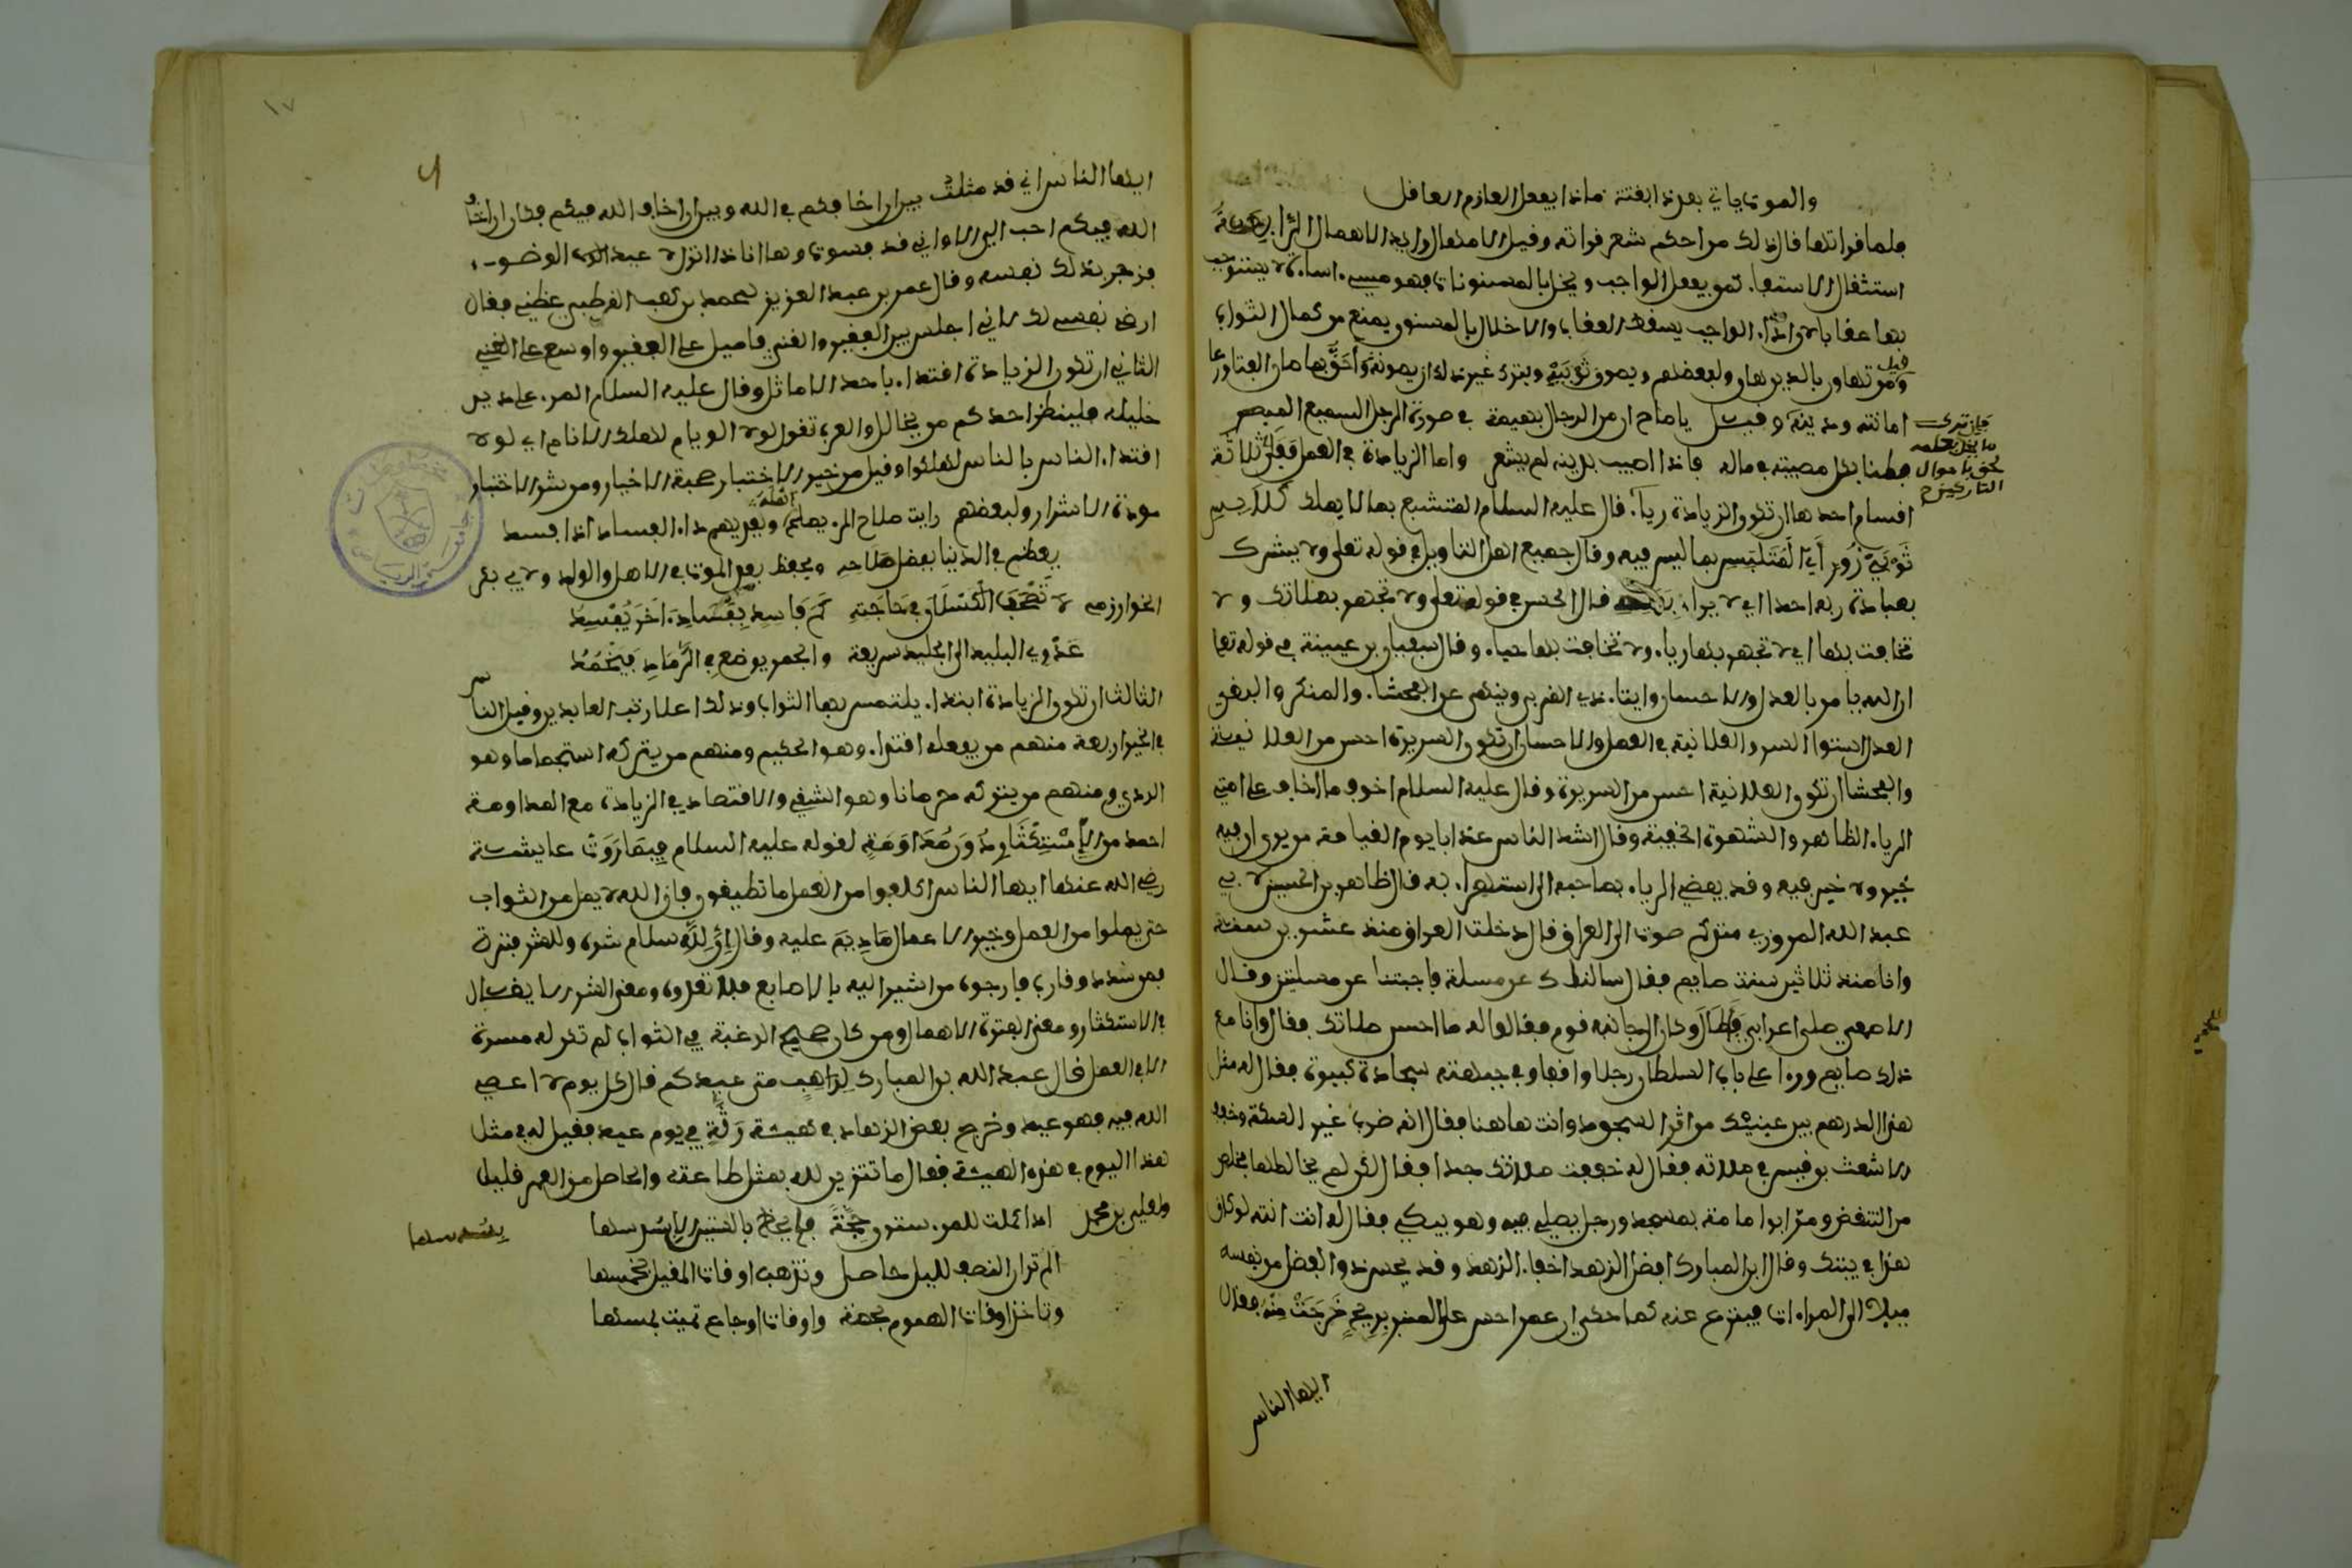 والموت ياتي بعد ذا بغتة ماذا يفعل العازم الغافل
فلما قراتها قال ذلك من احكم شعر قراته وقيل الامهال رايد الاهمال الرابعة
استثقال الاستيفاء كمن يفعل الواجب ويخل بالمسنونات فهو مسيء اساءة لا يستوجب
بها عقابا لان اداء الواجب يسقط العقاب والاخلال بالمسنون يمنع من كمال الثواب
قيل ومن تهاون بالدين هان ولبعضهم ويصون ثوبيه ويترك غير ذلك لا يصونه واحق ما صان الفتى ورعا
امانته ودينه وقيل يا صاح ان من الرجال بهيمة في صورة الرجل السميع المبصر
فطنا بكل مصيبة في ماله فاذا اصيب بدينه لم يشعر واما الزيادة في العمل فعلى ثلاثة
اقسام احدها ان تكون الزيادة رياء قال عليه السلام المتشبع بما لا يملك كلابس
ثوبي زور اي المتلبس بما ليس فيه وقال جميع اهل التاويل في قوله تعلى ولا يشرك
بعبادة ربه احدا اي لا يراءي قال الحسن في قوله تعلى ولا تجهر بصلاتك ولا
تخافت بها اي لا تجهر بها رياء ولا تخافت بها حياء وقال سفيان بن عيينة في قوله تعلى
ان الله يامر بالعدل والاحسان وايتاء ذي القربى وينهى عن الفحشاء والمنكر والبغي
العدل استواء السر والعلانية في العمل والاحسان ان تكون السريرة احسن من العلانية
والفحشا ان تكون العلانية احسن من السريرة وقال عليه السلام اخوف ما اخاف على امتي
الرياء الظاهر والشهوة الخفية وقال اشد الناس عذابا يوم القيامة من يرى ان فيه
خيرا ولا خير فيه وقد يفضي الرياء بصاحبه الى استهزاء به قال طاهر بن الحسين لابي
عبد الله المروزي منذ كم صرت الى العراق قال دخلت العراق منذ عشرين سنة
وانا منذ ثلاثين سنة صايم فقال سالتك عن مسلة فاجبتنا عن مسلتين وقال
الاصمعي صلى اعرابي فاطال وكان الى جانبه قوم فقالوا له ما احسن صلاتك فقال وانا مع
ذلك صايم وراى على باب السلطان رجلا واقفا وفي جبهته سجادة كبيرة فقال له مثل
هذا الدرهم بين عينيك من اثر السجود وانت هاهنا فقال انه ضرب غير السكة وخفف
الاشعث بن قيس في صلاته فقال له خففت صلاتك جدا فقال لكن لم يخالطها
من التنقص ومر ابو امامة بمسجد ورجل يصلي فيه وهو يبكي فقال له انت انت لو كان
هذا في بيتك وقال ابن المبارك افضل الزهد اخفاء الزهد وقد يحس ذو الفضل من نفسه
ميلا الى المراءات فينزع عنه كما حكي ان عمر احس على المنبر بريح خرجت منه فقال
ايها الناس
فان ترك
ما يخل بعلمه
لحق باحوال
التاركين ح
١٧
ايها الناس اني قد مثلت بين ان اخافكم في الله وبين ان اخاف الله فيكم فكان ان اخاف
الله فيكم احب الي الا واني قد فسوت وها انا ذا انزل لاعيد الوضوء
فزجر بذلك نفسه وقال عمر بن عبد العزيز لمحمد بن كعب القرظي عظني فقال
ارض نفسي لك لاني اجلس بين الفقير والغني فاميل على الفقير واوسع على الغني
الثاني ان تكون الزيادة اقتداء باحد الاماثل وقال عليه السلام المرء على دين
خليله فلينظر احدكم من يخالل والعرب تقول لولا الويام لهلك الانام اي لولا
اقتداء الناس بالناس لهلكوا وقيل من خير الاختيار صحبة الاخيار ومن شر الاختيار
مودة الاشرار ولبعضهم رايت صلاح المرء يصلح اهله ويعديهم داء الفساد اذا فسد
يعظم في الدنيا بفضل صلاحه ويحفظ بعد الموت في الاهل والولد ولابي بكر
الخوارزمي لا تصحب الكسلان في حاجته كم فاسد بفساد اخر يفسد
عدوى البليد الى الجليد سريعة والجمر يوضع في الرماد فيخمد
الثالث ان تكون الزيادة ابتداء يلتمس بها الثواب وذلك اعلا رتب العابدين وقيل الناس
في الخير اربعة منهم من يفعله اقتداء وهو الحكيم ومنهم من يتركه استحسانا وهو
الردي ومنهم من يتركه حرمانا وهو الشقي والاقتصاد في الزيادة مع المداومة
احمد من الاستكثار دون مداومة لقوله عليه السلام فيما روت عايشة
رضي الله عنها ايها الناس اكلفوا من العمل ما تطيقون فان الله لا يمل من الثواب
حتى يملوا من العمل وخير الاعمال ما ديم عليه وقال ان للاسلام شرة وللشر فترة
فمن سدد وقارب فارجوه من اشير اليه بالاصابع فلا تعدوه ومعنى الشر الايغال
في الاستكثار ومعنى الفترة الاهمال ومن كان صحيح الرغبة في الثواب لم تكن له مسرة
الا في العمل قال عبد الله بن المبارك لراهب متى عيدكم قال كل يوم لا اعصي
الله فيه فهو عيد وخرج بعض الزهاد في هيئة رثة في يوم عيد فقيل له في مثل
هذا اليوم في هذه الهيئة فقال ما تتزين لله بمثل طاعته والحاصل من العمر قليل
ولعلي بن محمد اذا كملت للمرء ستون حجة فلم يحظ بالستين الا بسدسها
الم تر ان النصف لليل حاصل وتذهب اوقات المقيل بخمسها
وتاخذ اوقات الهموم بحصة واوقات اوجاع تميت بمسها
بسدسها